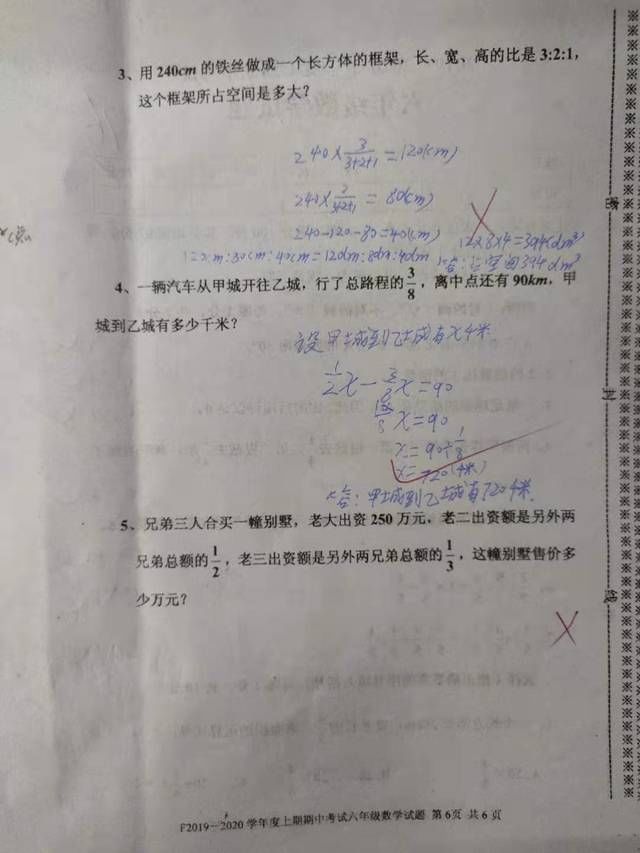 3、用240cm的铁丝做成一个长方体的框架，长、宽、高的比是3:2:1，
这个框架所占空间是多大?
240×3/(3+2+1)=120(cm)
240×2/(3+2+1)=80(cm)
240-120-80=40(cm)
12×8×4=394(dm³)
120cm:80cm:40cm=12dm:8dm:4dm
答:占空间394dm³
4、一辆汽车从甲城开往乙城，行了总路程的3/8，离中点还有90km，甲
城到乙城有多少千米?
设甲城到乙城有x千米
1/2x-3/8x=90
1/8x=90
x=90÷1/8
x=720(千米)
答:甲城到乙城有720千米.
5、兄弟三人合买一幢别墅，老大出资250万元，老二出资额是另外两
兄弟总额的1/2，老三出资额是另外两兄弟总额的1/3，这幢别墅售价多
少万元?
密
封
线
F2019—2020学年度上期期中考试六年级数学试题 第6页 共6页